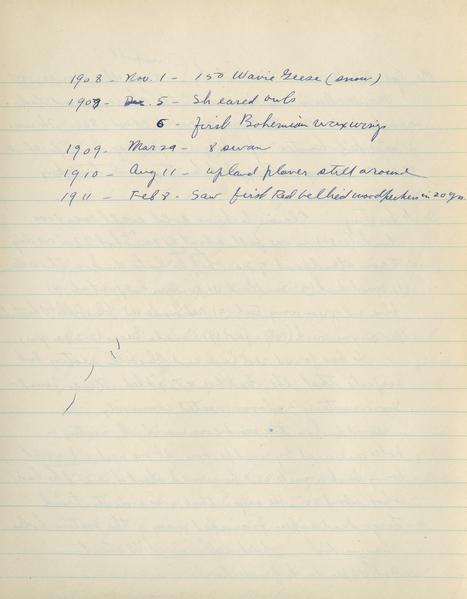 1908 - Nov. 1 - 150 Wavie Geese (snow)
1909 - Dec. 5 - Sh eared owls
6 - first Bohemian waxwings
1909 - Mar 29 - 8 swan
1910 - Aug 11 - upland plover still around
1911 - Feb 8 - Saw first Red bellied woodpecker in 20 yrs.